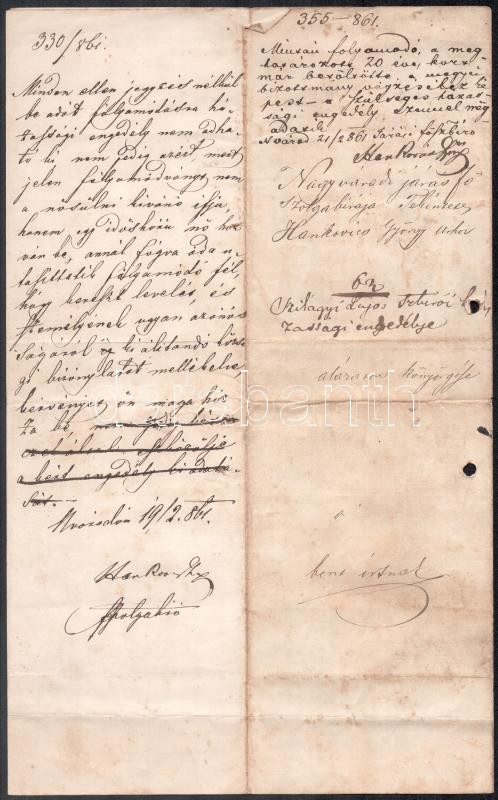 330/861.
Minden ellen jegyzés nélkül
be adott folyamodásra há-
zassági engedély nem adha-
tó ki nem pedig azért mert
jelen folyamodványt nem
a nősülni kívánó ifju
hanem egy időskoru nő hoz-
ván be, annál fogva oda u-
tasittatik folyamodó fél
hogy kereszt levelét, és
személyének ugyan azonos
ságáról ki állitandó közsé
gi bizonylatot mellékelve
kérvényét ön maga hoz
za be
a kért engedély ki adatá-
sát.
Nváradon 19/2. 861.
Hankovits
Szolgabiró
355-861.
Miután folyamodó, a meg
határozott 20 éves kort
már betöltötte a megyei
bizottmány végzéséhez ké
pest - a szükséges házas-
sági engedély ezennel meg
adatik
Nvárad 21/2 861 Járási főszbiró
Hankovits
Nagyváradi járás fő
Szolgabirája Tekintetes
Hankovics György urhoz
Szilágyi Lajos házas-
sági engedélye
alázatos könyörgése
a
bent irtnak
darabanth